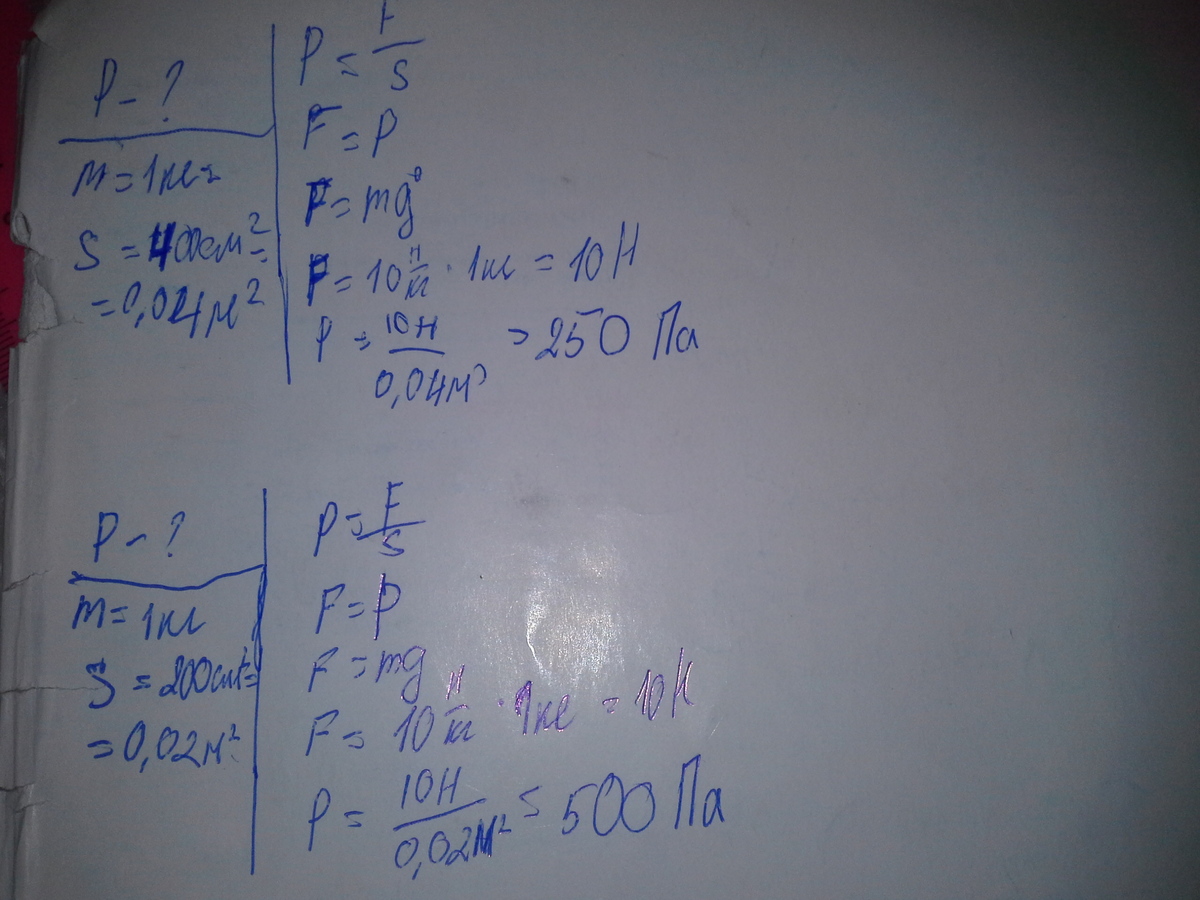 P - ?
m = 1кг =
S = 400см² =
= 0,04м²
P = F/S
F = P
F = mg
F = 10 Н/кг · 1кг = 10 Н
P = 10Н/0,04м² = 250 Па
P - ?
m = 1кг
S = 200см² =
= 0,02м²
P = F/S
F = P
F = mg
F = 10 Н/кг · 1кг = 10Н
P = 10Н/0,02м² = 500 Па